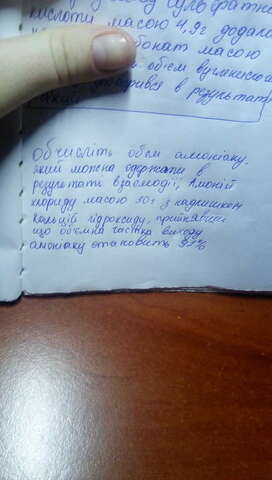 сульфатно
кислоти масою 4,9г додали
бонат масою
об'єм вуглекисло
ворився в результат
Обчисліть об'єм амоніаку,
який можна одержати в
результаті взаємодії, Амоній
хлориду масою 10г з надлишком
кальцій гідроксиду, прийнявши
що об'ємна частка виходу
амоніаку становить 97%